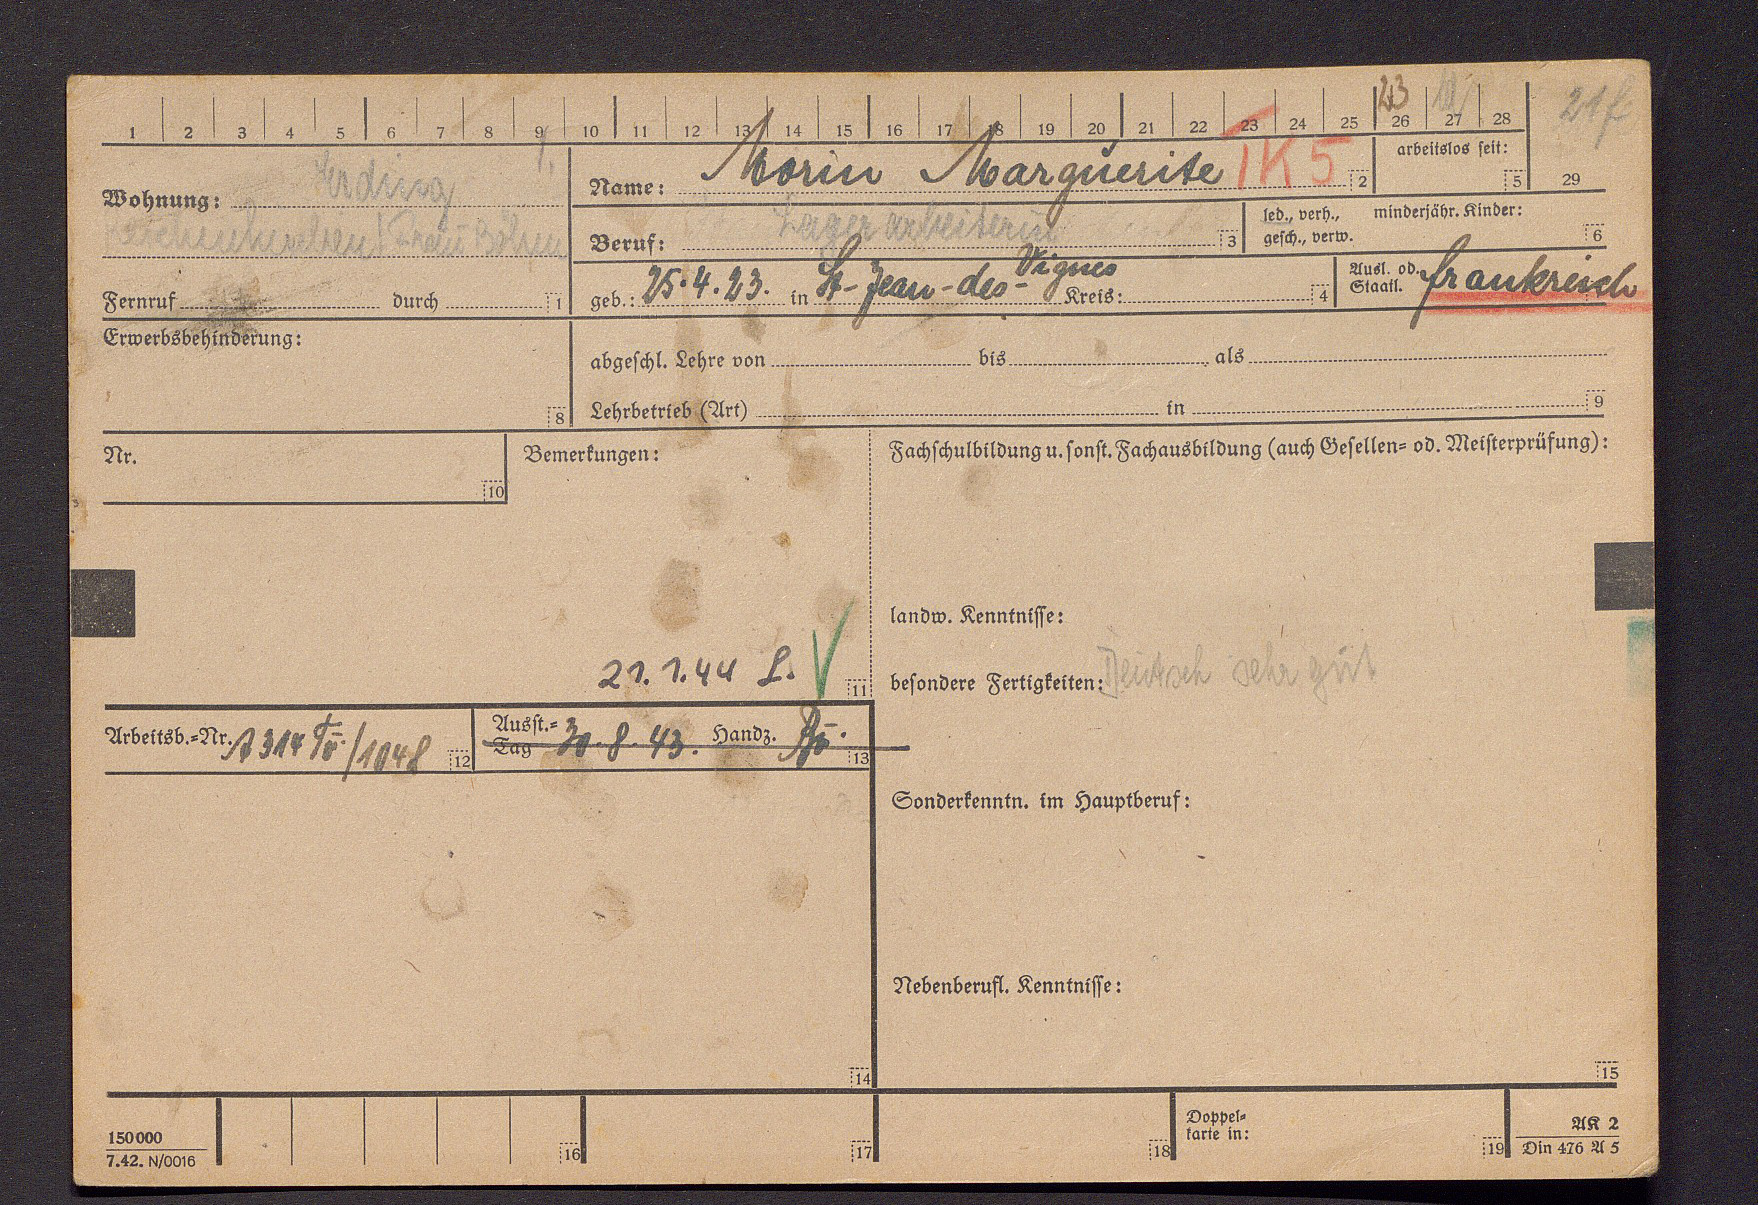 23
21f
1 2 3 4 5 6 7 8 9 10 11 12 13 14 15 16 17 18 19 20 21 22 23 24 25 26 27 28
Wohnung: Erding
Name: Morin Marguerite 1K5 2
arbeitslos seit: 5 29
Frau Böhm
Beruf: Lagerarbeiterin 3
led., verh., minderjähr. Kinder:
gesch., verw. 6
Fernruf durch 1
geb.: 25.4.23. in St-Jean-des-Vignes Kreis: 4
Ausl. od. Staatl. Frankreich
Erwerbsbehinderung: 8
abgeschl. Lehre von bis als
Lehrbetrieb (Art) in 9
Nr. 10
Bemerkungen:
Fachschulbildung u. sonst. Fachausbildung (auch Gesellen= od. Meisterprüfung):
landw. Kenntnisse:
21.1.44 L. V 11
besondere Fertigkeiten: Deutsch sehr gut
Arbeitsb.=Nr. A 314 /1048 12
Ausst.=Tag 30.8.43. Handz. 13
Sonderkenntn. im Hauptberuf:
Nebenberufl. Kenntnisse:
14
15
150000
7.42. N/0016
16
17
18
Doppel=
karte in: 19
AK 2
Din 476 A 5